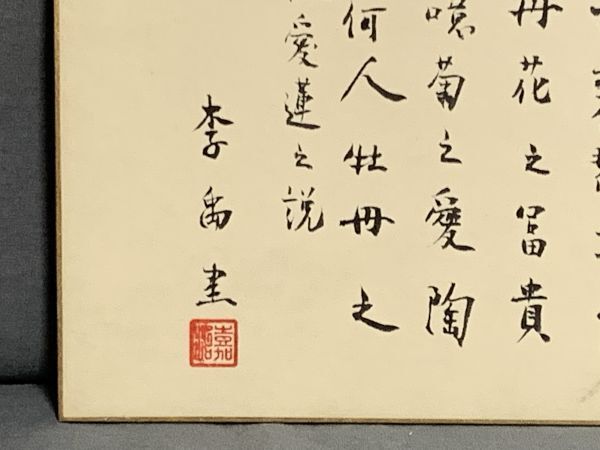 丹花之冨貴
噫菊之愛陶
何人牡丹之
愛蓮之説
李
嘉